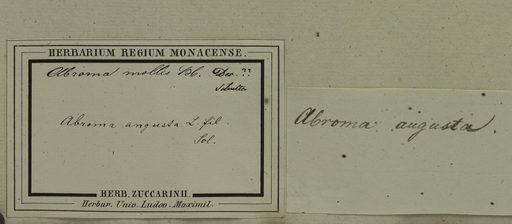 HERBARIUM REGIUM MONACENSE.
Abroma mollis
Abroma angusta L. fil.
Sol.
HERB. ZUCCARINII.
Herbar. Univ. Ludov. Maximil.
Abroma augusta.